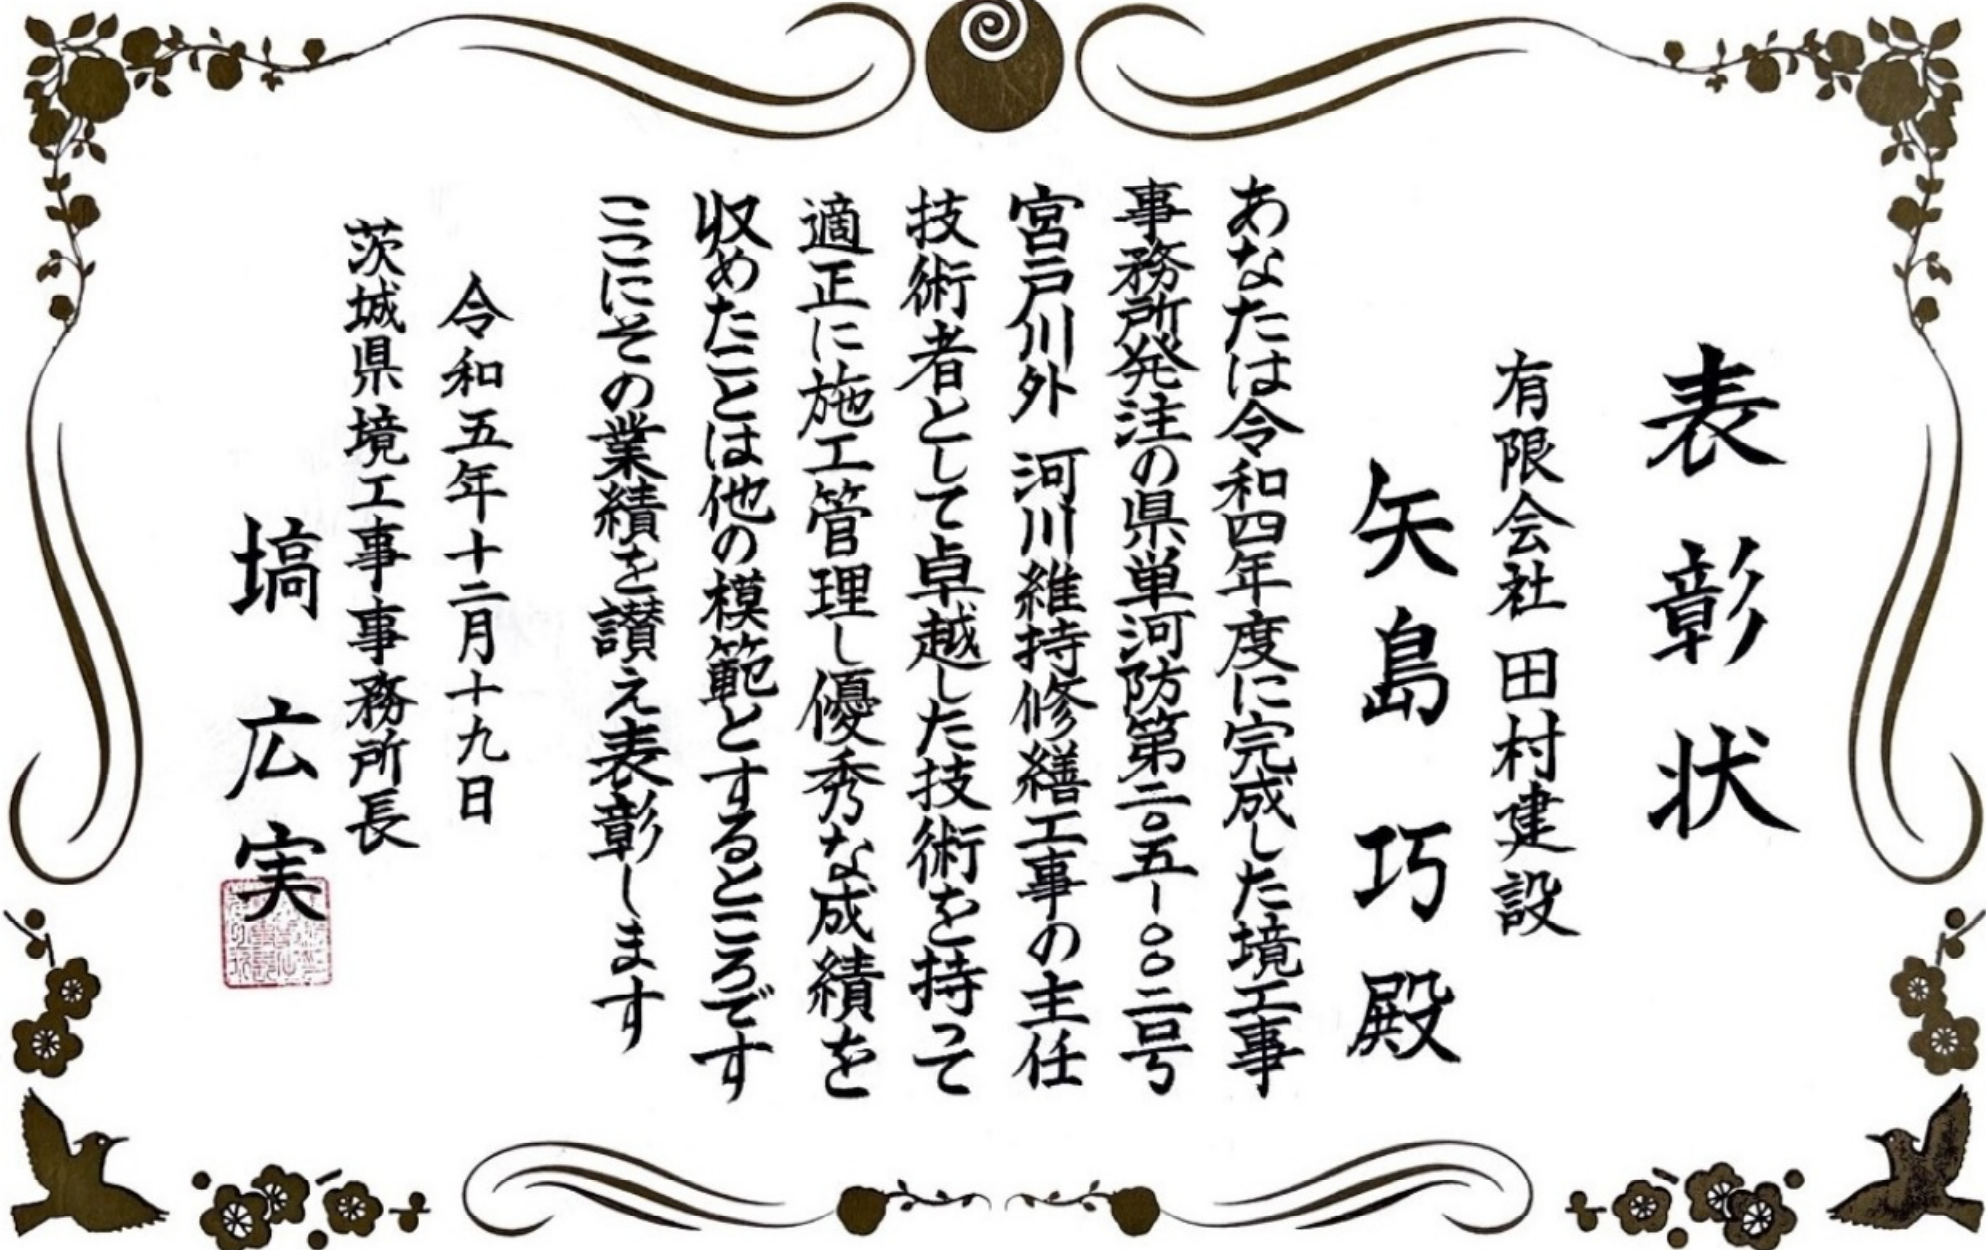 表彰状
有限会社 田村建設
矢島巧殿
あなたは令和四年度に完成した境工事
事務所発注の県単河防第二〇五ー〇〇二号
宮戸川外 河川維持修繕工事の主任
技術者として卓越した技術を持って
適正に施工管理し優秀な成績を
収めたことは他の模範とするところです
ここにその業績を讃え表彰します
令和五年十二月十九日
茨城県境工事事務所長
塙広実